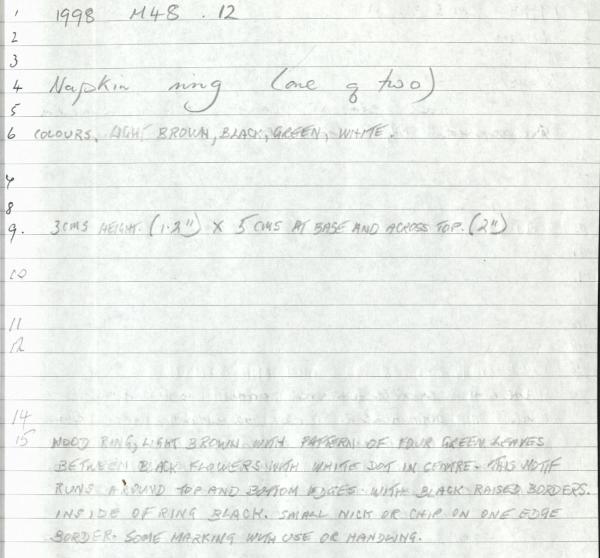 1 1998 M48 . 12
2
3
4 Napkin ring (one of two)
5
6 COLOURS, LIGHT BROWN, BLACK, GREEN, WHITE.
7
8
9. 3 CMS HEIGHT. (1.2") X 5 CMS AT BASE AND ACROSS TOP. (2")
10
11
12
14
15 WOOD RING, LIGHT BROWN WITH PATTERN OF FOUR GREEN LEAVES
BETWEEN BLACK FLOWERS WITH WHITE DOT IN CENTRE. THIS MOTIF
RUNS AROUND TOP AND BOTTOM EDGES WITH BLACK RAISED BORDERS.
INSIDE OF RING BLACK. SMALL NICK OR CHIP ON ONE EDGE
BORDER. SOME MARKING WITH USE OR HANDLING.